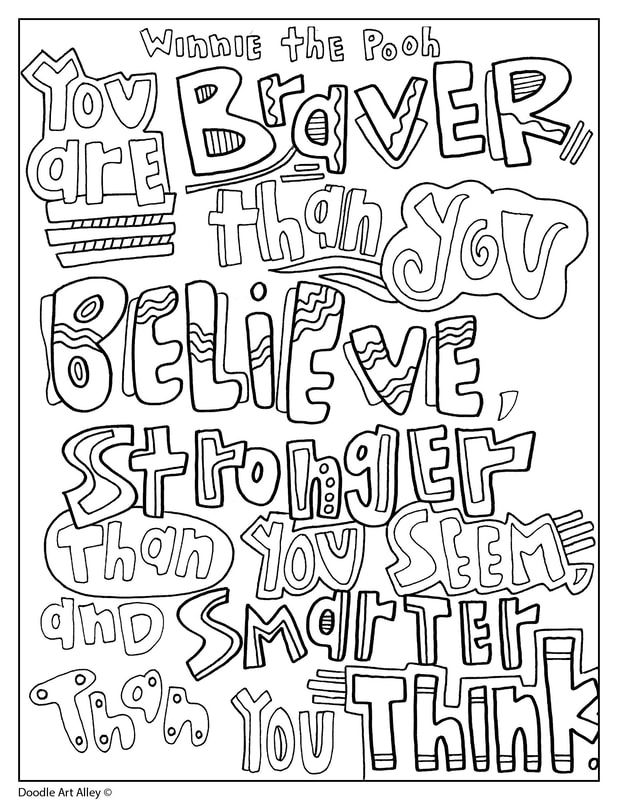 Winnie the Pooh
You BrAVER
are
than you
BELiEVE,
Stronger
Than You SEEM,
and SMarTEr
Than You Think.
Doodle Art Alley ©